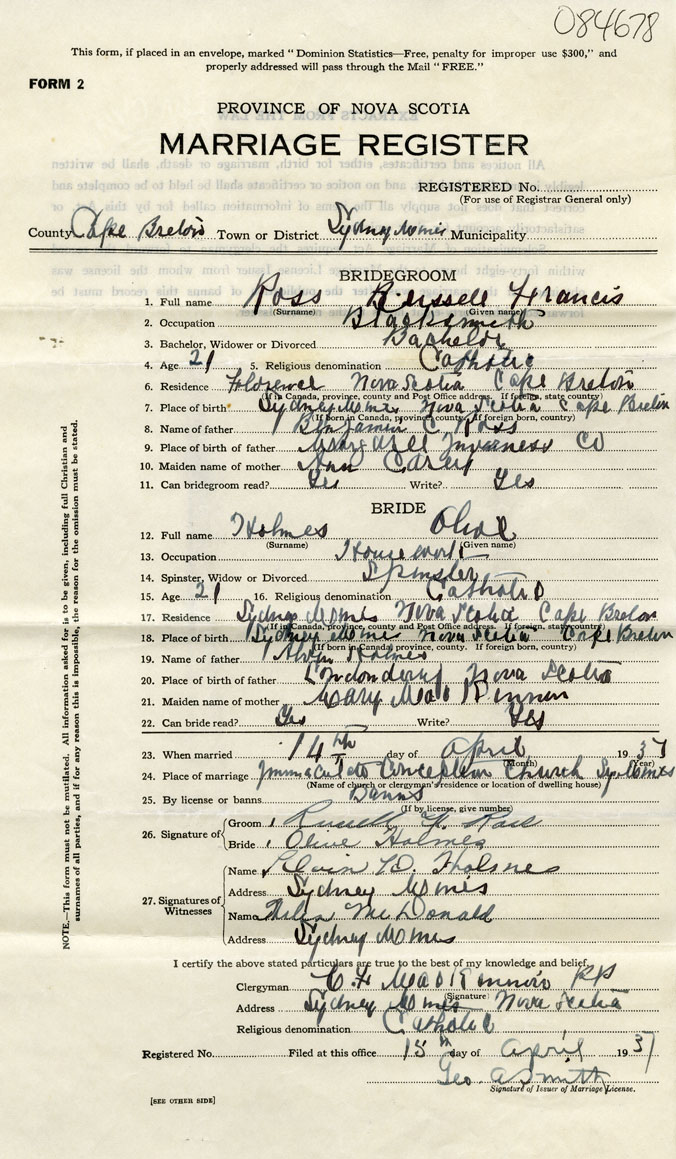 084678
This form, if placed in an envelope, marked "Dominion Statistics—Free, penalty for improper use $300," and
properly addressed will pass through the Mail "FREE."
FORM 2
PROVINCE OF NOVA SCOTIA
MARRIAGE REGISTER
REGISTERED No.
(For use of Registrar General only)
County Cape Breton Town or District Sydney Mines Municipality
BRIDEGROOM
1. Full name Ross Russell Francis
(Surname) (Given name)
2. Occupation Blacksmith
3. Bachelor, Widower or Divorced Bachelor
4. Age 21 5. Religious denomination Catholic
6. Residence Florence Nova Scotia Cape Breton
(If in Canada, province, county and Post Office address. If foreign, state country)
7. Place of birth Sydney Mines Nova Scotia Cape Breton
(If born in Canada, province, county. If foreign born, country)
8. Name of father Benjamin C Ross
9. Place of birth of father Margaree Inverness Co
10. Maiden name of mother Ann Carey
11. Can bridegroom read? Yes Write? Yes
BRIDE
12. Full name Holmes Olive
(Surname) (Given name)
13. Occupation Housework
14. Spinster, Widow or Divorced Spinster
15. Age 21 16. Religious denomination Catholic
17. Residence Sydney Mines Nova Scotia Cape Breton
(If in Canada, province, county and Post Office address. If foreign, state country)
18. Place of birth Sydney Mines Nova Scotia Cape Breton
(If born in Canada, province, county. If foreign born, country)
19. Name of father Holmes
20. Place of birth of father Londonderry Nova Scotia
21. Maiden name of mother Mary MacKinnon
22. Can bride read? Yes Write? Yes
23. When married 14th day of April 1937
(Month) (Year)
24. Place of marriage Immaculate Conception Church Syd Mines
(Name of church or clergyman's residence or location of dwelling house)
25. By license or banns Banns
(If by license, give number)
26. Signature of
Groom Russell F. Ross
Bride Olive Holmes
27. Signatures of Witnesses
Name Holmes
Address Sydney Mines
Name McDonald
Address Sydney Mines
I certify the above stated particulars are true to the best of my knowledge and belief.
Clergyman C. F. MacKinnon PP
(Signature)
Address Sydney Mines Nova Scotia
Religious denomination Catholic
Registered No. Filed at this office 15th day of April 1937
Geo. A Smith
Signature of Issuer of Marriage License.
[SEE OTHER SIDE]
NOTE.—This form must not be mutilated. All information asked for is to be given, including full Christian and
surnames of all parties, and if for any reason this is impossible, the reason for the omission must be stated.